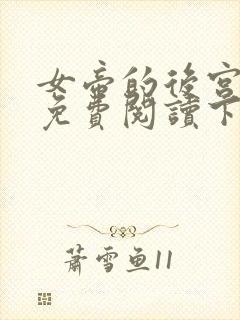 女帝的後宮
免費閱讀下
蕭雪鱼11